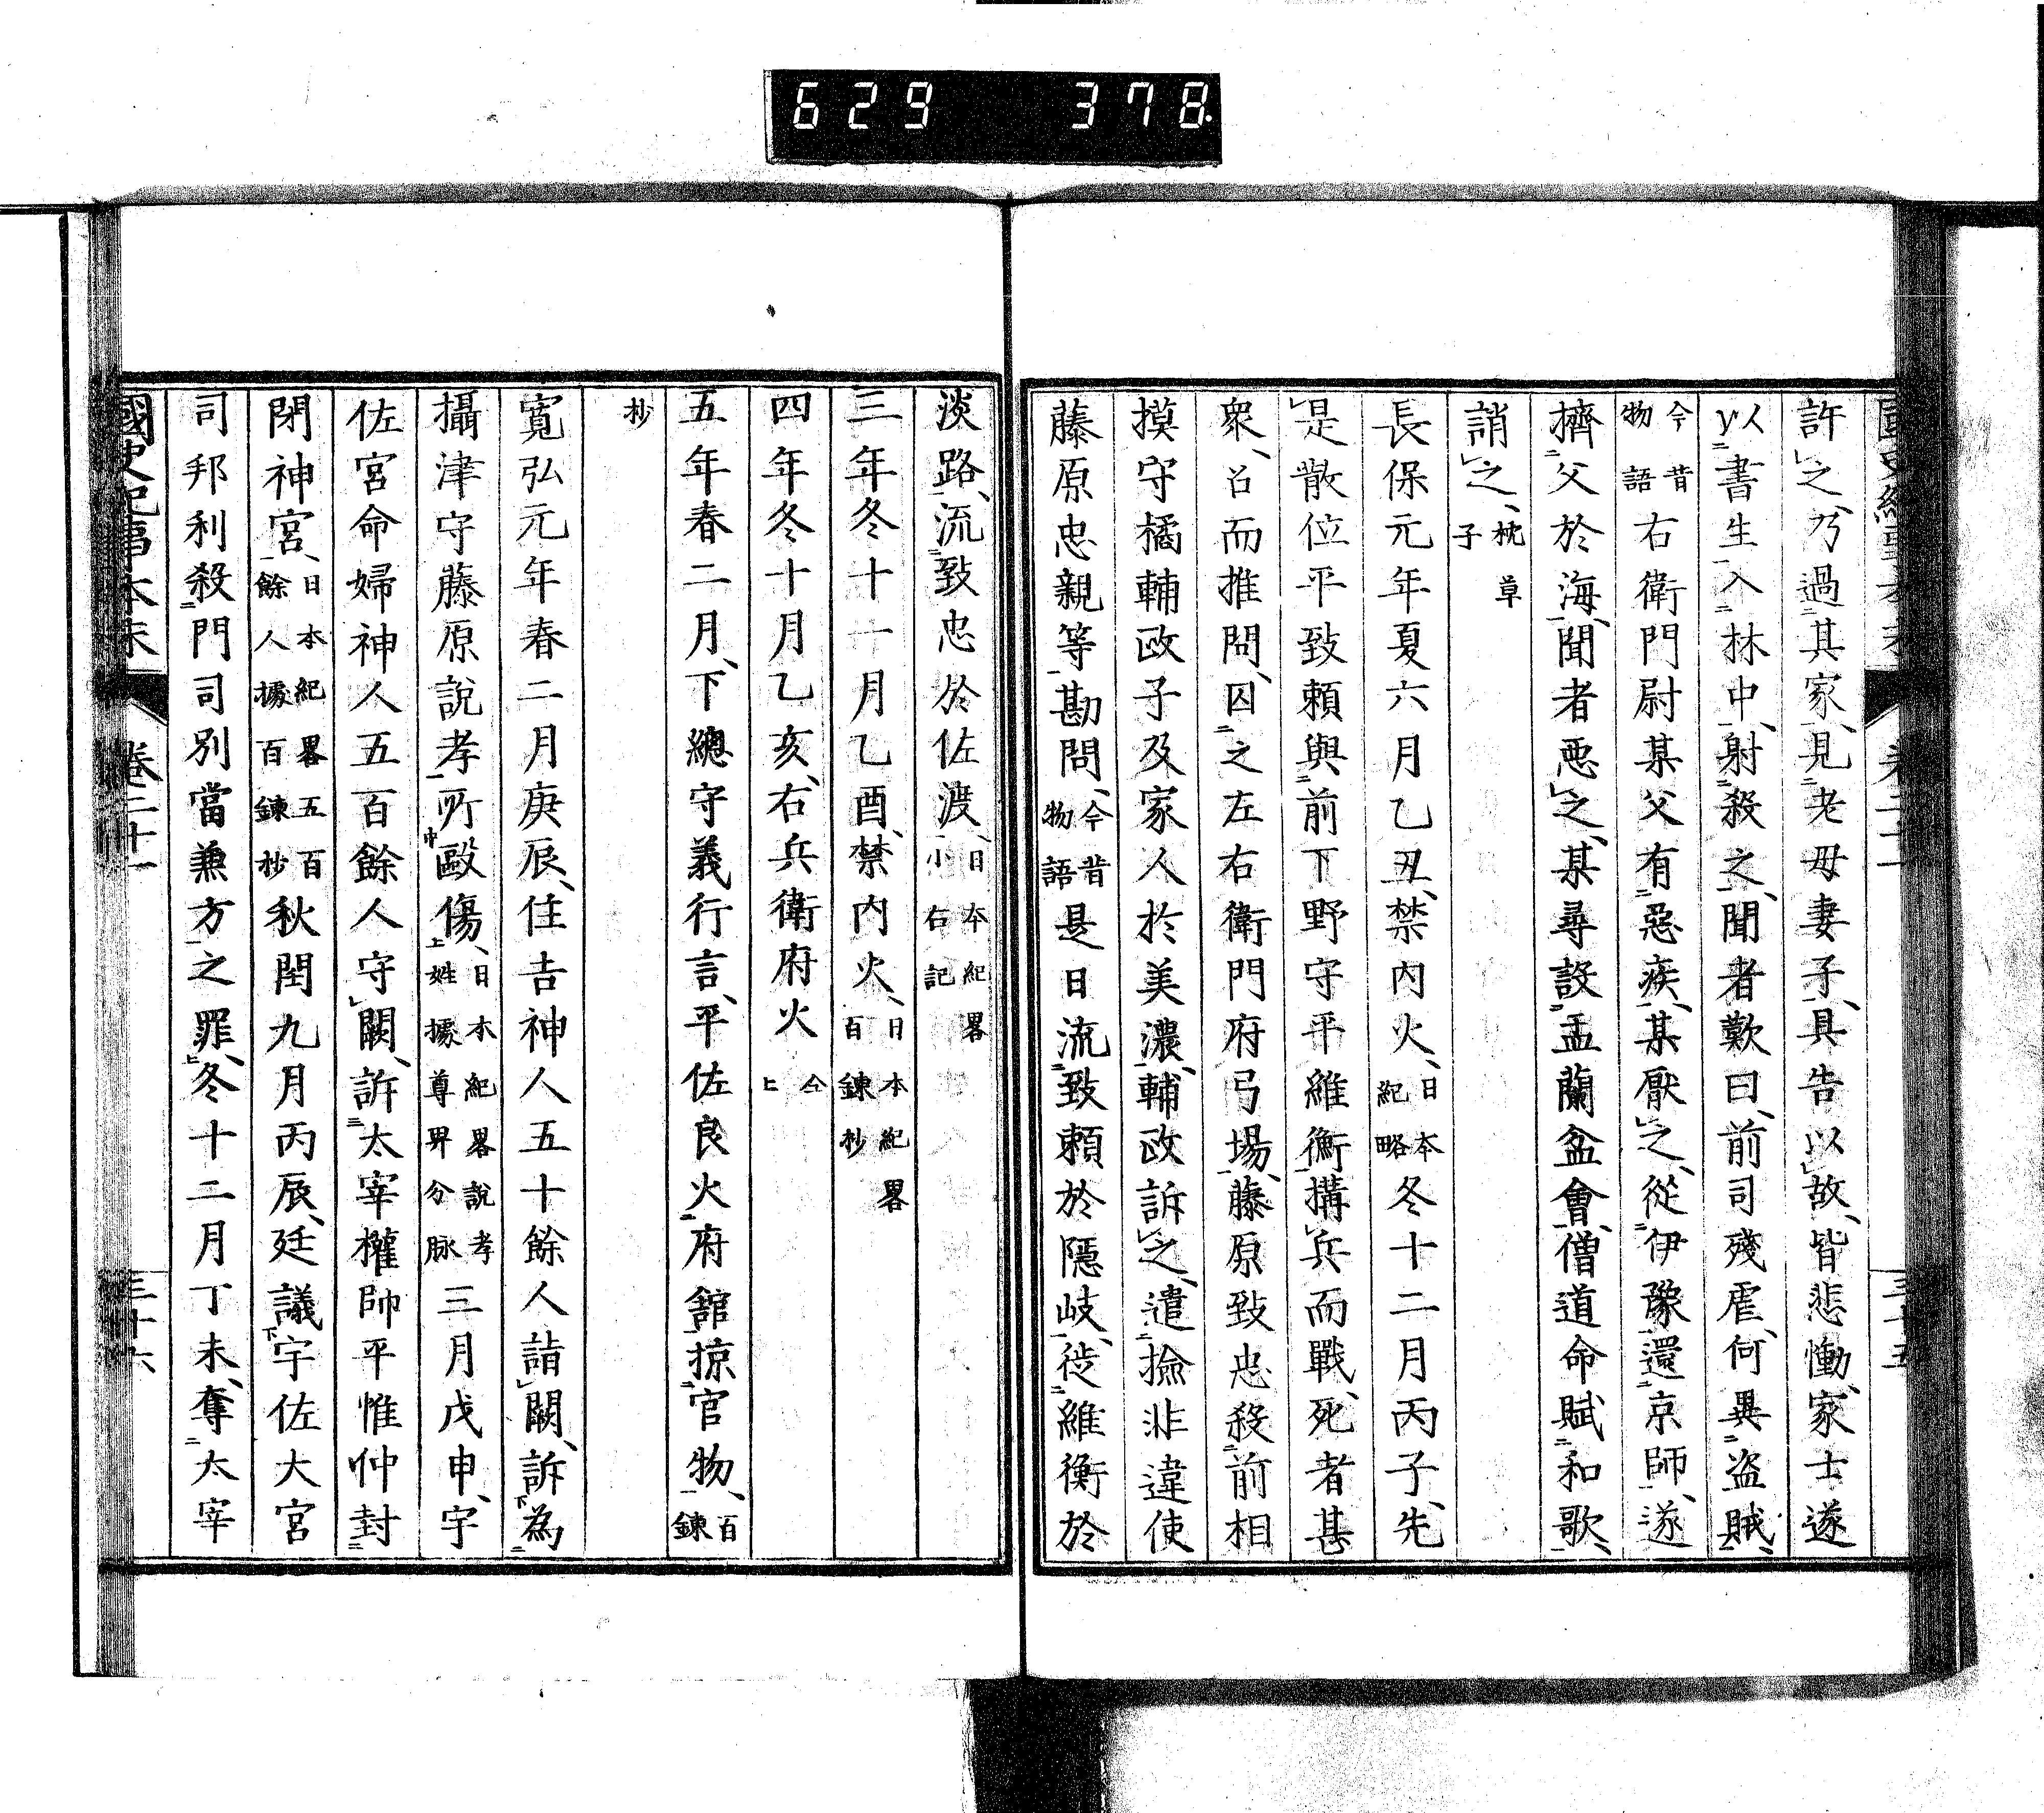 629 378.
許之、乃過其家、見老母妻子、具告以故、皆悲慟、家士遂
以書生入林中、射殺之、聞者歎曰、前司殘虐、何異盗賊、
今昔物語右衛門尉某父有惡疾、某厭之、從伊豫還京師、遂
擠父於海、聞者惡之、某尋設盂蘭盆會、僧道命賦和歌、
誚之、枕草子
長保元年夏六月乙丑、禁内火、日本紀略冬十二月丙子、先
是散位平致頼與前下野守平維衡搆兵而戰、死者甚
衆、召而推問、囚之左右衛門府弓場、藤原致忠殺前相
摸守橘輔政子及家人於美濃、輔政訴之、遣撿非違使
藤原忠親等勘問、今昔物語是日流致頼於隱岐、徙維衡於
淡路、流致忠於佐渡、日本紀畧小右記
三年冬十一月乙酉、禁内火、日本紀畧百錬抄
四年冬十月乙亥、右兵衛府火仝上
五年春二月、下總守義行言、平佐良火府舘掠官物、百錬
抄
寛弘元年春二月庚辰、住吉神人五十餘人詣闕、訴為
攝津守藤原説孝所毆傷、日本紀畧説孝姓據尊畀分脉三月戊申、宇
佐宮命婦神人五百餘人守闕、訴太宰權帥平惟仲封
閉神宮、日本紀畧五百餘人據百錬抄秋閏九月丙辰、廷議宇佐大宮
司邦利殺門司別當兼方之罪、冬十二月丁未、奪太宰
國史紀事本末 卷二十一 三十六